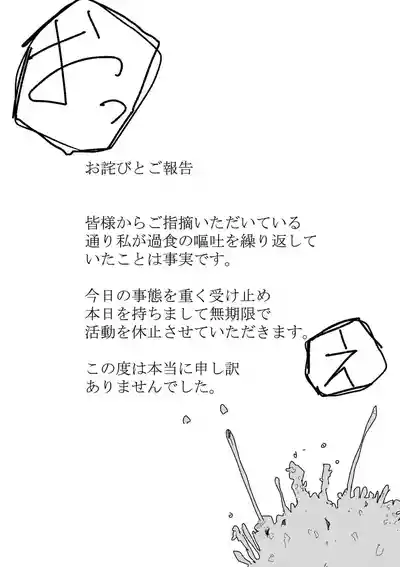 おっ
お詫びとご報告
皆様からご指摘いただいている
通り私が過食の嘔吐を繰り返して
いたことは事実です。
今日の事態を重く受け止め
本日を持ちまして無期限で
活動を休止させていただきます。
この度は本当に申し訳
ありませんでした。
え